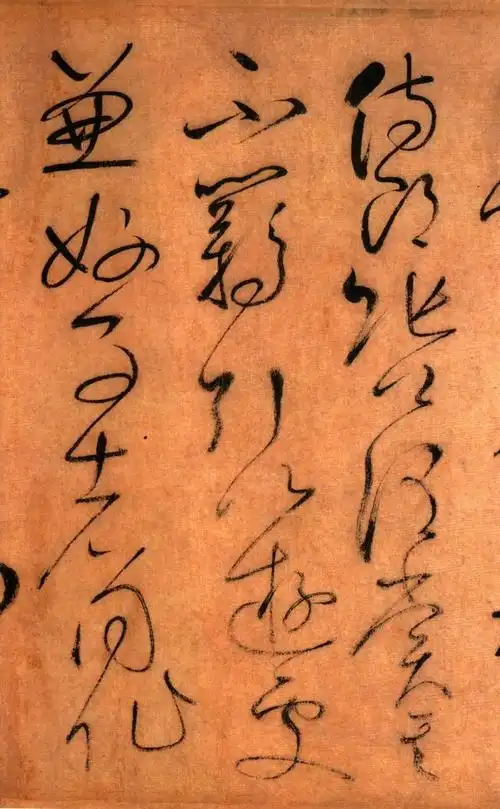 侍郎張公謂賞其
不羈引以遊處
兼好事者同作